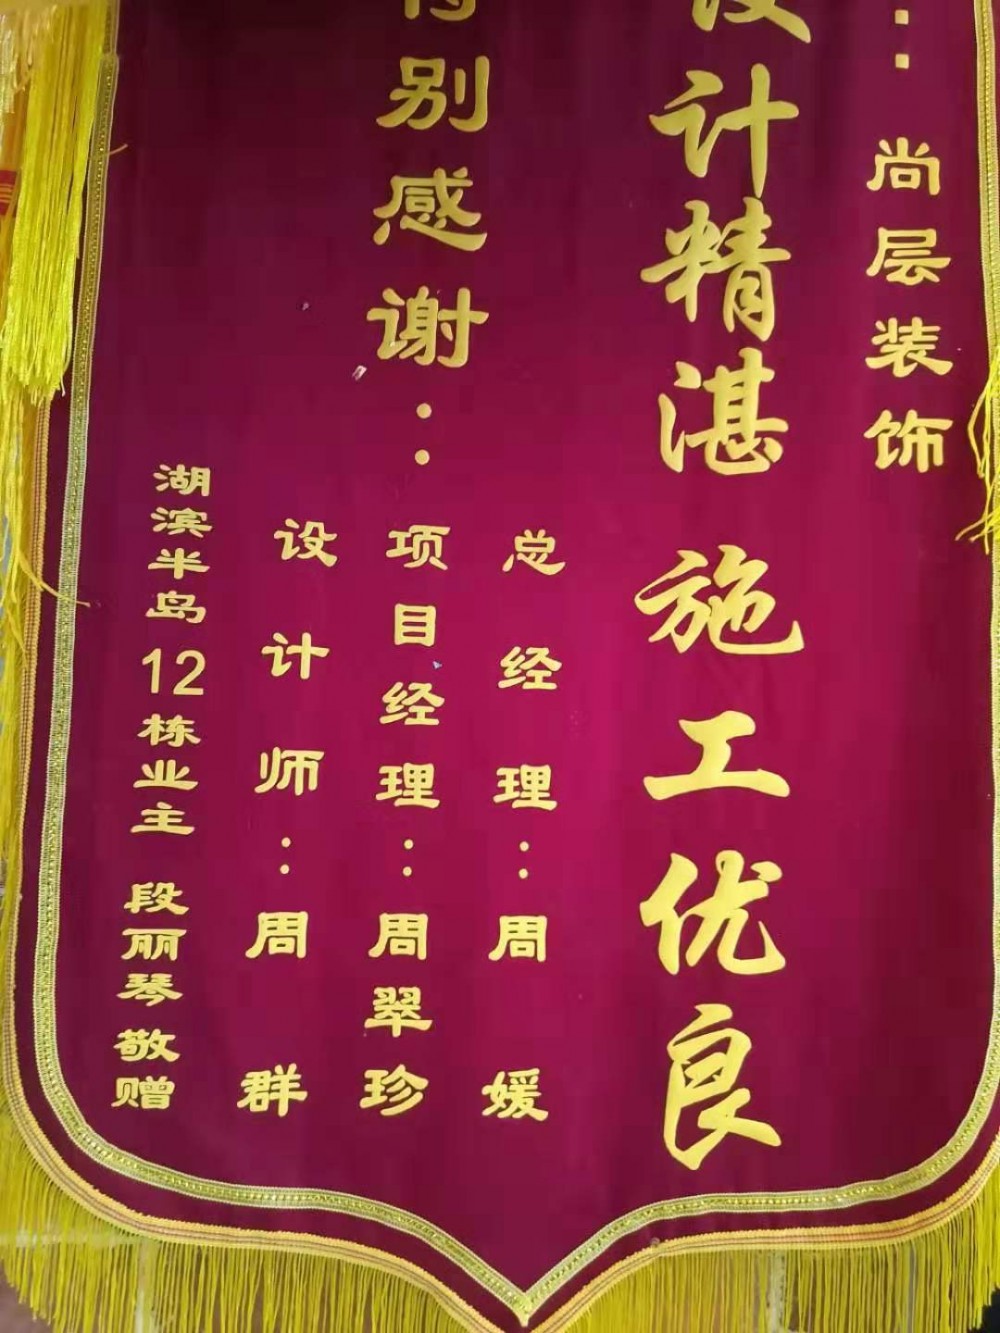 ：尚层装饰
设计精湛 施工优良
特别感谢：
总经理：周媛
项目经理：周翠珍
设计师：周群
湖滨半岛12栋业主 段丽琴 敬赠